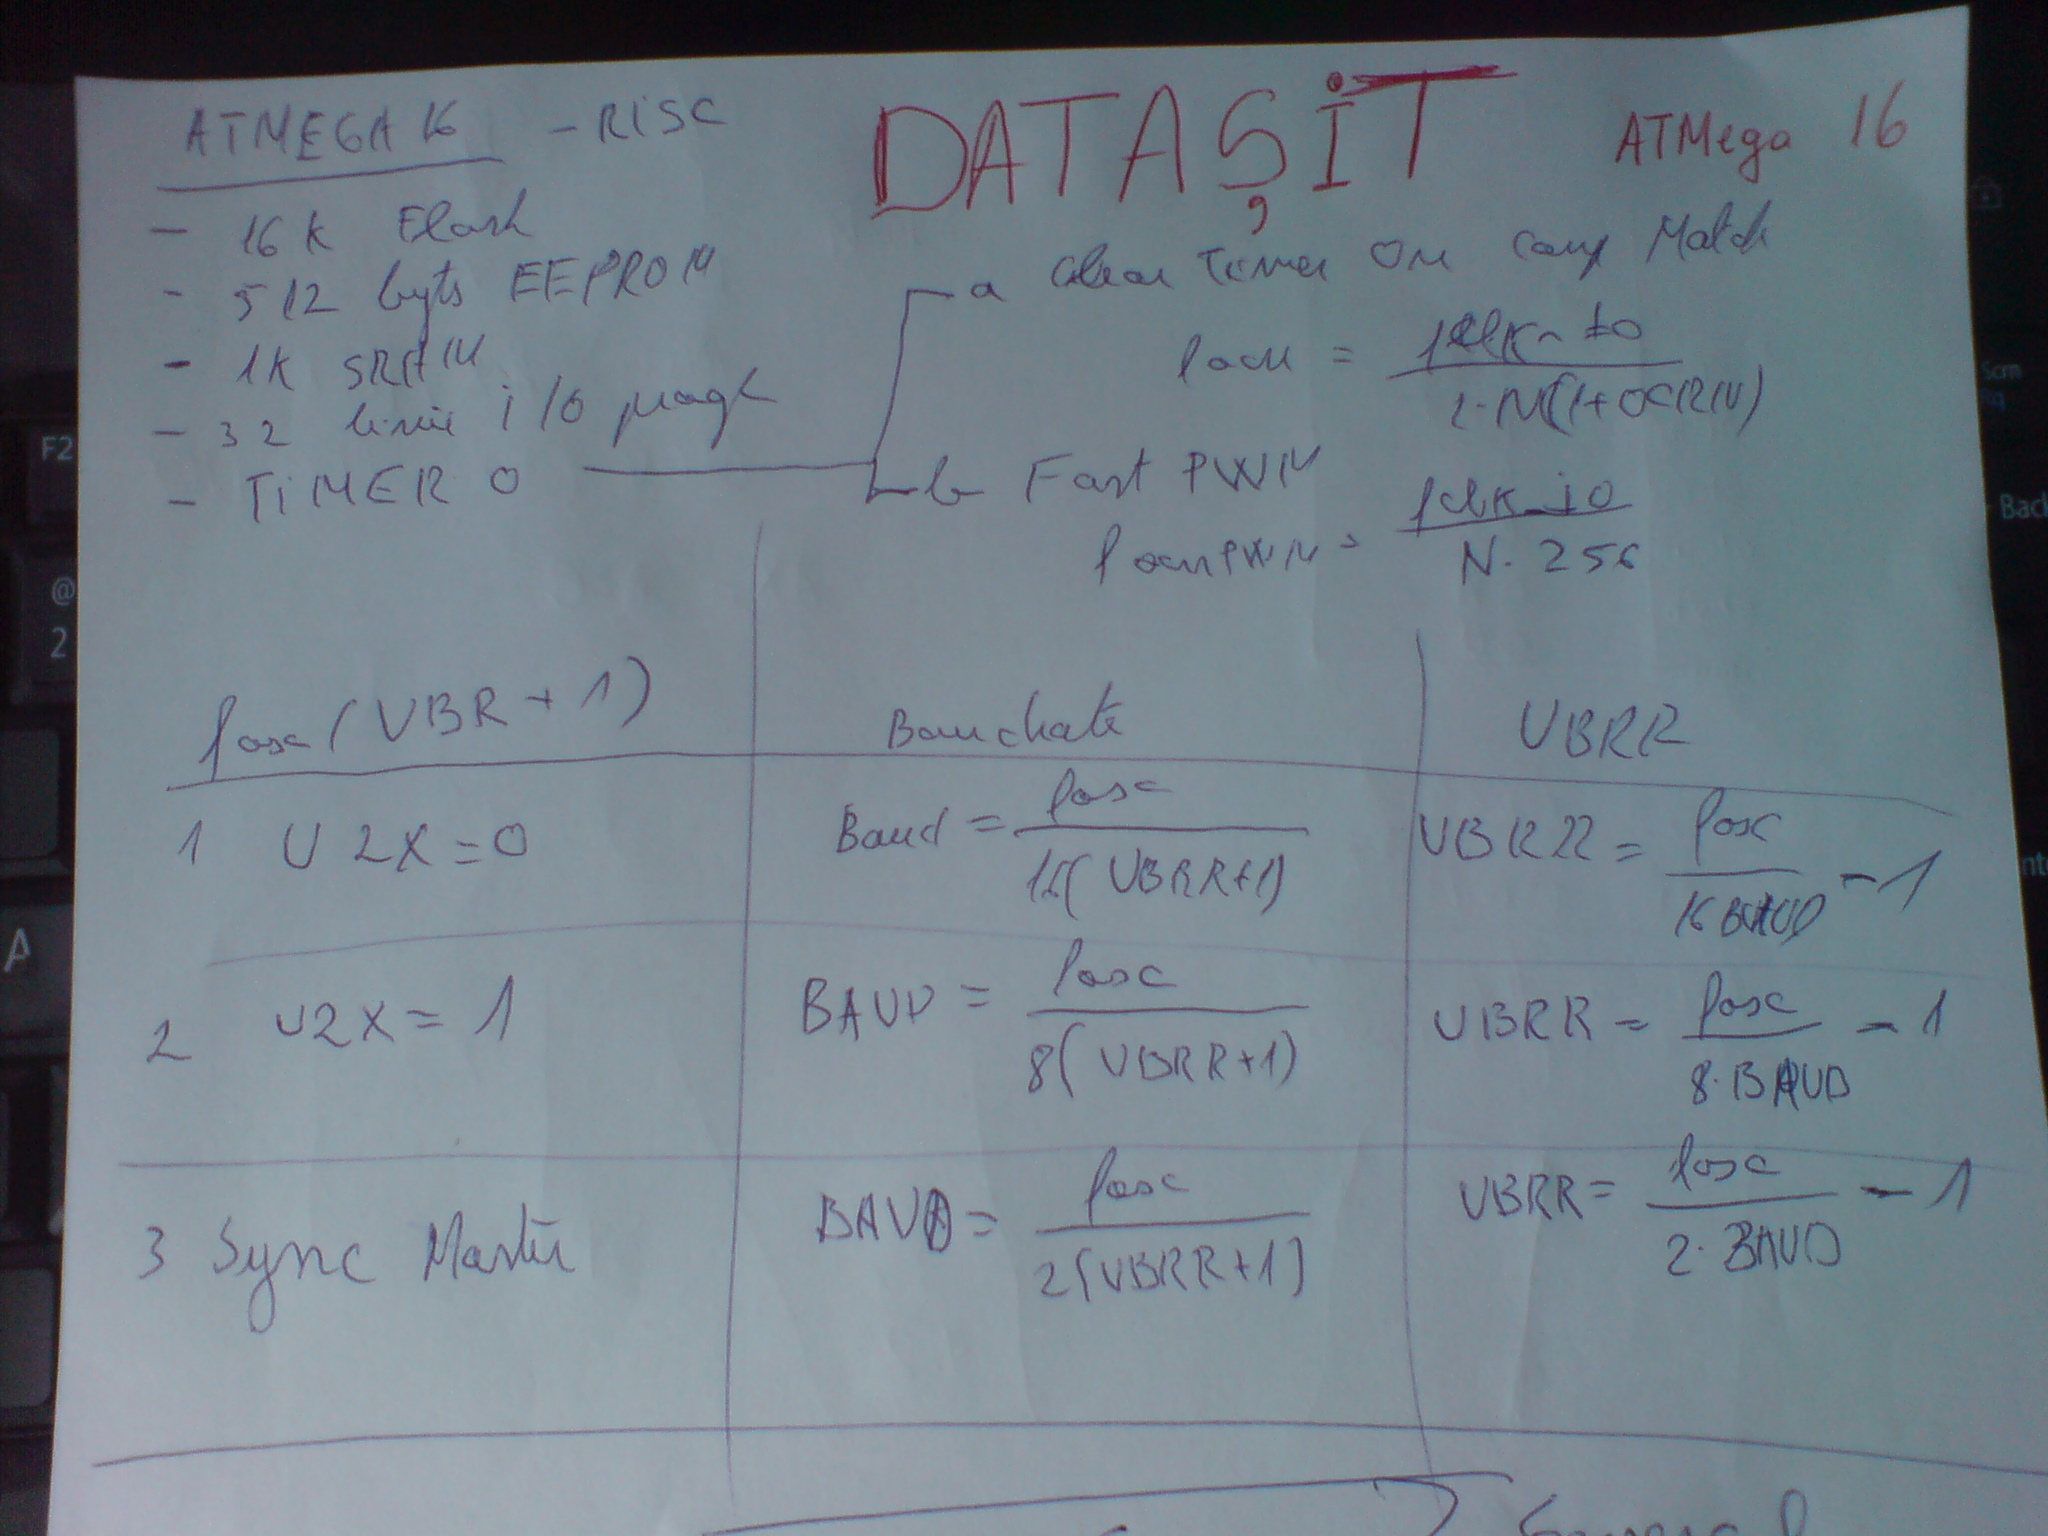 ATMEGA 16 - RISC
DATAŞİT
ATMega 16
- 16 K Flash
- 512 byts EEPROM
- 1K SRAM
- 32 linii i/o
- TIMER 0
a Clear Timer On Comp Match
focn = fclk_IO / 2·N(1+OCRN)
b Fast PWM
focnPWM = fclk_IO / N·256
fosc (UBR + 1)
Baudrate
UBRR
1 U2X=0
Baud = fosc / 16(UBRR+1)
UBRR = fosc / 16 BAUD - 1
2 U2X=1
BAUD = fosc / 8(UBRR+1)
UBRR = fosc / 8·BAUD - 1
3 Sync Master
BAUD = fosc / 2(UBRR+1)
UBRR = fosc / 2·BAUD - 1
F2
@
2
A
Scrn
Back